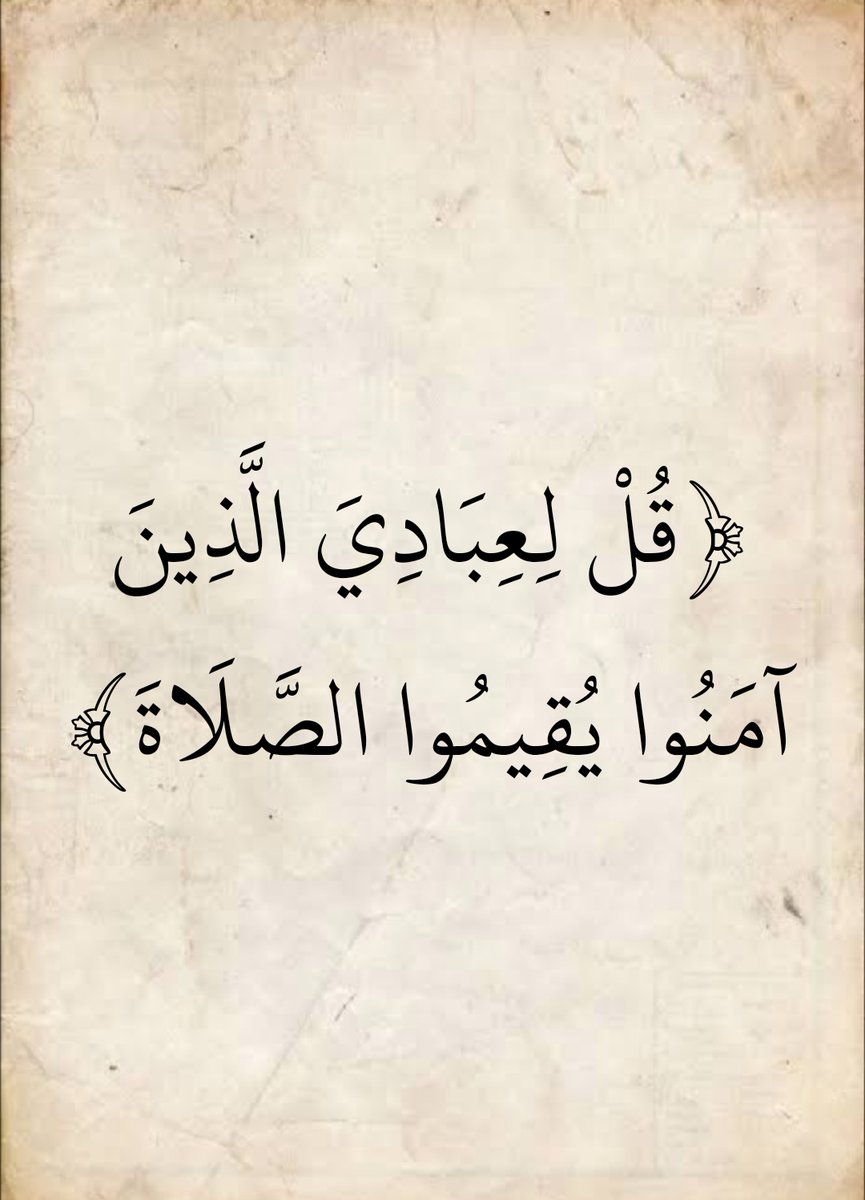 ﴿قُلْ لِعِبَادِيَ الَّذِينَ
آمَنُوا يُقِيمُوا الصَّلَاةَ﴾